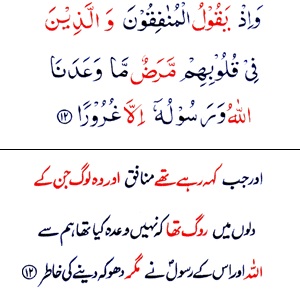 وَاِذْ يَقُوْلُ الْمُنٰفِقُوْنَ وَ الَّذِيْنَ
فِىْ قُلُوْبِهِمْ مَّرَضٌ مَّا وَعَدَنَا
اللّٰهُ وَرَسُوْلُهٗۤ اِلَّا غُرُوْرًا ﴿۱۲﴾
اور جب کہہ رہے تھے منافق اور وہ لوگ جن کے
دلوں میں روگ تھا کہ نہیں وعدہ کیا تھا ہم سے
اللہ اور اس کے رسولؐ نے مگر دھوکہ دینے کی خاطر ﴿۱۲﴾